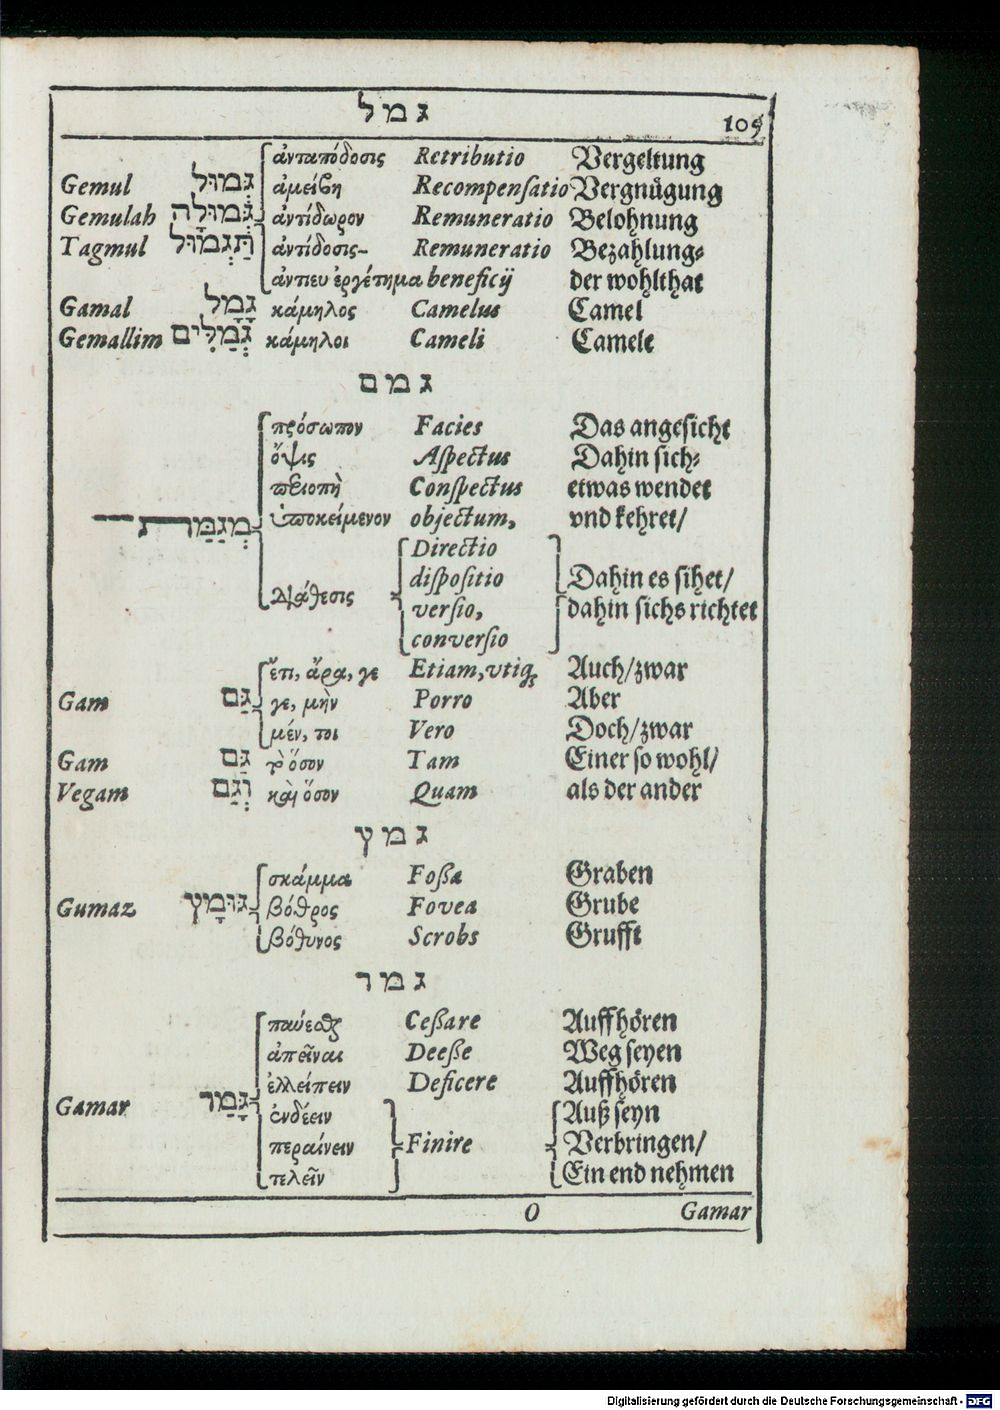 גמל 105
ἀνταπόδοσις Retributio Vergeltung
Gemul גְּמוּל ἀμείβη Recompenſatio Vergnügung
Gemulah גְּמוּלָה ἀντίδωρον Remuneratio Belohnung
Tagmul תַּגְמוּל ἀντίδοσις– Remuneratio Bezahlung⸗
ἀντευεργέτημα beneficij der wohlthat
Gamal גָּמָל κάμηλος Camelus Camel
Gemallim גְּמַלִּים κάμηλοι Cameli Camele
גמם
πρόσωπον Facies Das angeſicht
ὄψις Aſpectus Dahin ſich⸗
περιοπὴ Conſpectus etwas wendet
מְגַמַּת ὑποκείμενον objectum, vnd kehret/
Directio
diſpoſitio Dahin es ſihet/
διάθεσις verſio, dahin ſichs richtet
converſio
ἔτι, ἄρα, γε Etiam, vtiq; Auch/zwar
Gam גַּם γε, μὴν Porro Aber
μέν, τοι Vero Doch/zwar
Gam גַּם ὅσον Tam Einer ſo wohl/
Vegam וְגַם καὶ ὅσον Quam als der ander
גמץ
σκάμμα Foßa Graben
Gumaz גּוּמָץ βόθρος Fovea Grube
βόθυνος Scrobs Grufft
גמר
παύεσθαι Ceßare Auffhören
ἀπεῖναι Deeße Weg ſeyen
ἐλλείπειν Deficere Auffhören
Gamar גָּמַר ἐνδέειν Auß ſeyn
περαίνειν Finire Verbringen/
τελεῖν Ein end nehmen
O Gamar
Digitalisierung gefördert durch die Deutsche Forschungsgemeinschaft - DFG